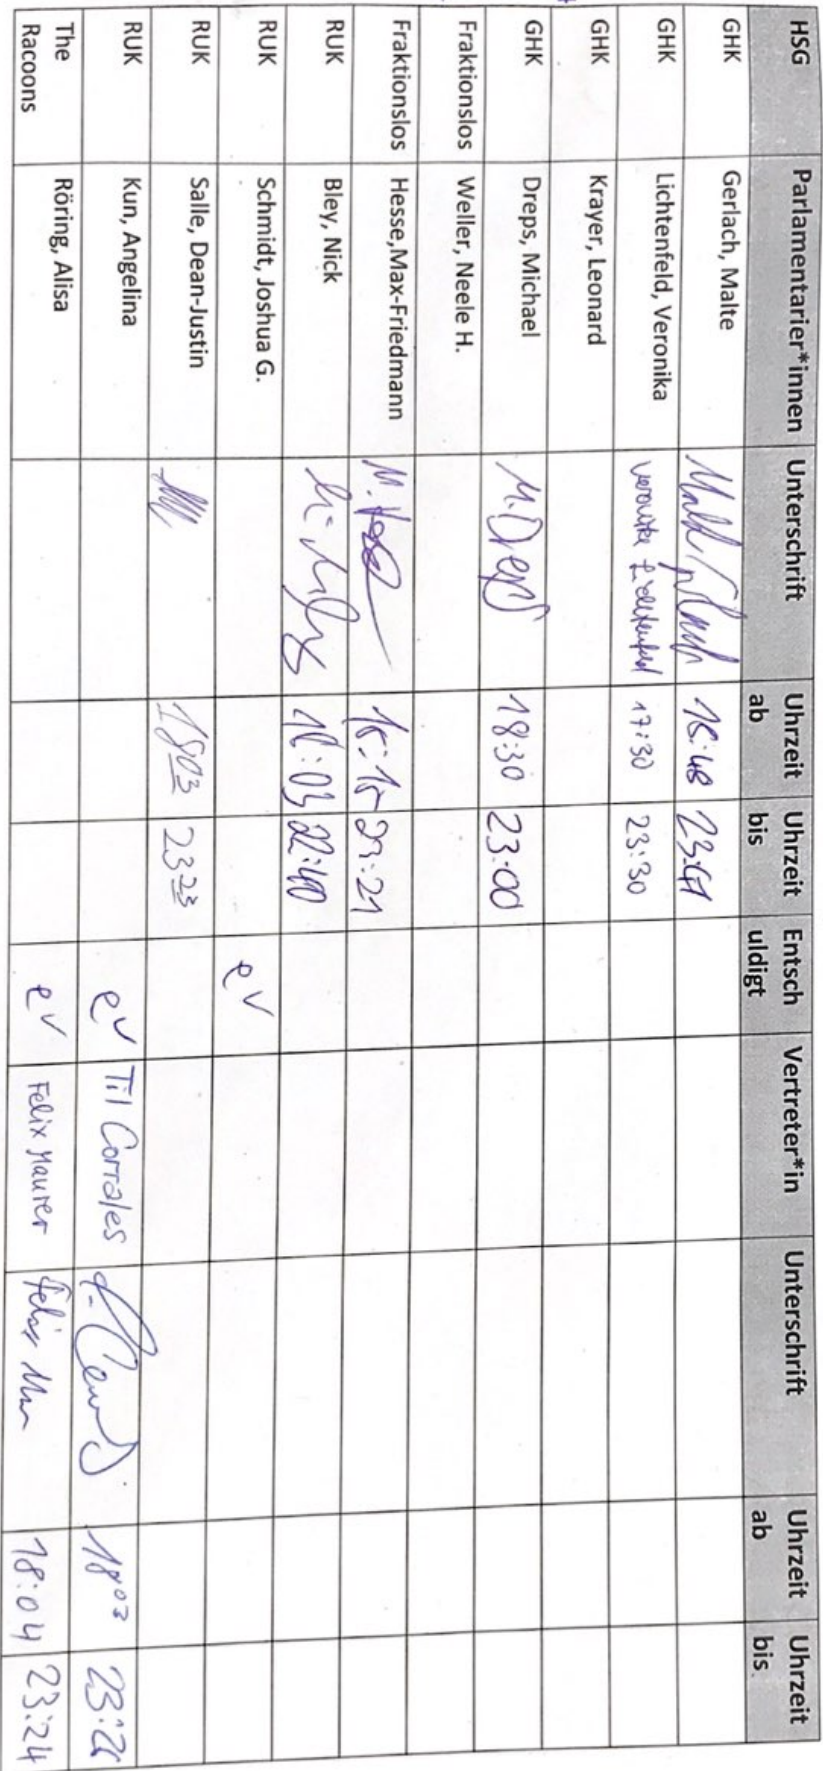 HSG Parlamentarier*innen Unterschrift Uhrzeit ab Uhrzeit bis Entsch uldigt Vertreter*in Unterschrift Uhrzeit ab Uhrzeit bis
GHK Gerlach, Malte
GHK Lichtenfeld, Veronika Veronika Lichtenfeld 17:30 23:30
GHK Krayer, Leonard
GHK Dreps, Michael M. Dreps 18:30 23:00
Fraktionslos Weller, Neele H.
Fraktionslos Hesse,Max-Friedmann 23:21
RUK Bley, Nick 22:40
RUK Schmidt, Joshua G. eV
RUK Salle, Dean-Justin 1803 2323
RUK Kun, Angelina eV Til Corrales 1803
The Racoons Röring, Alisa eV Felix Maurer 18:04 23:24